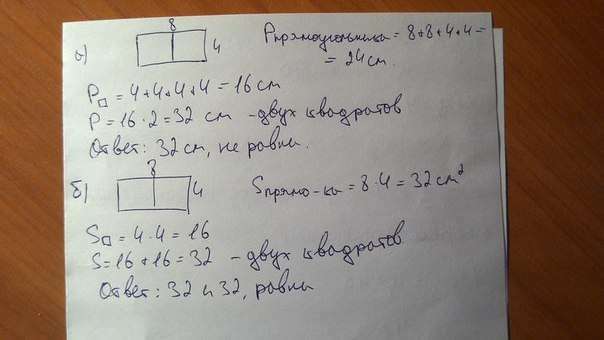 а) 8 4 Pпрямоугольника = 8+8+4+4 =
= 24 см.
P□ = 4+4+4+4 = 16 см
P = 16 · 2 = 32 см - двух квадратов
Ответ: 32 см, не равны.
б) 8 4 Sпрямо-ка = 8 · 4 = 32 см²
S□ = 4 · 4 = 16
S = 16 + 16 = 32 - двух квадратов
Ответ: 32 и 32, равны